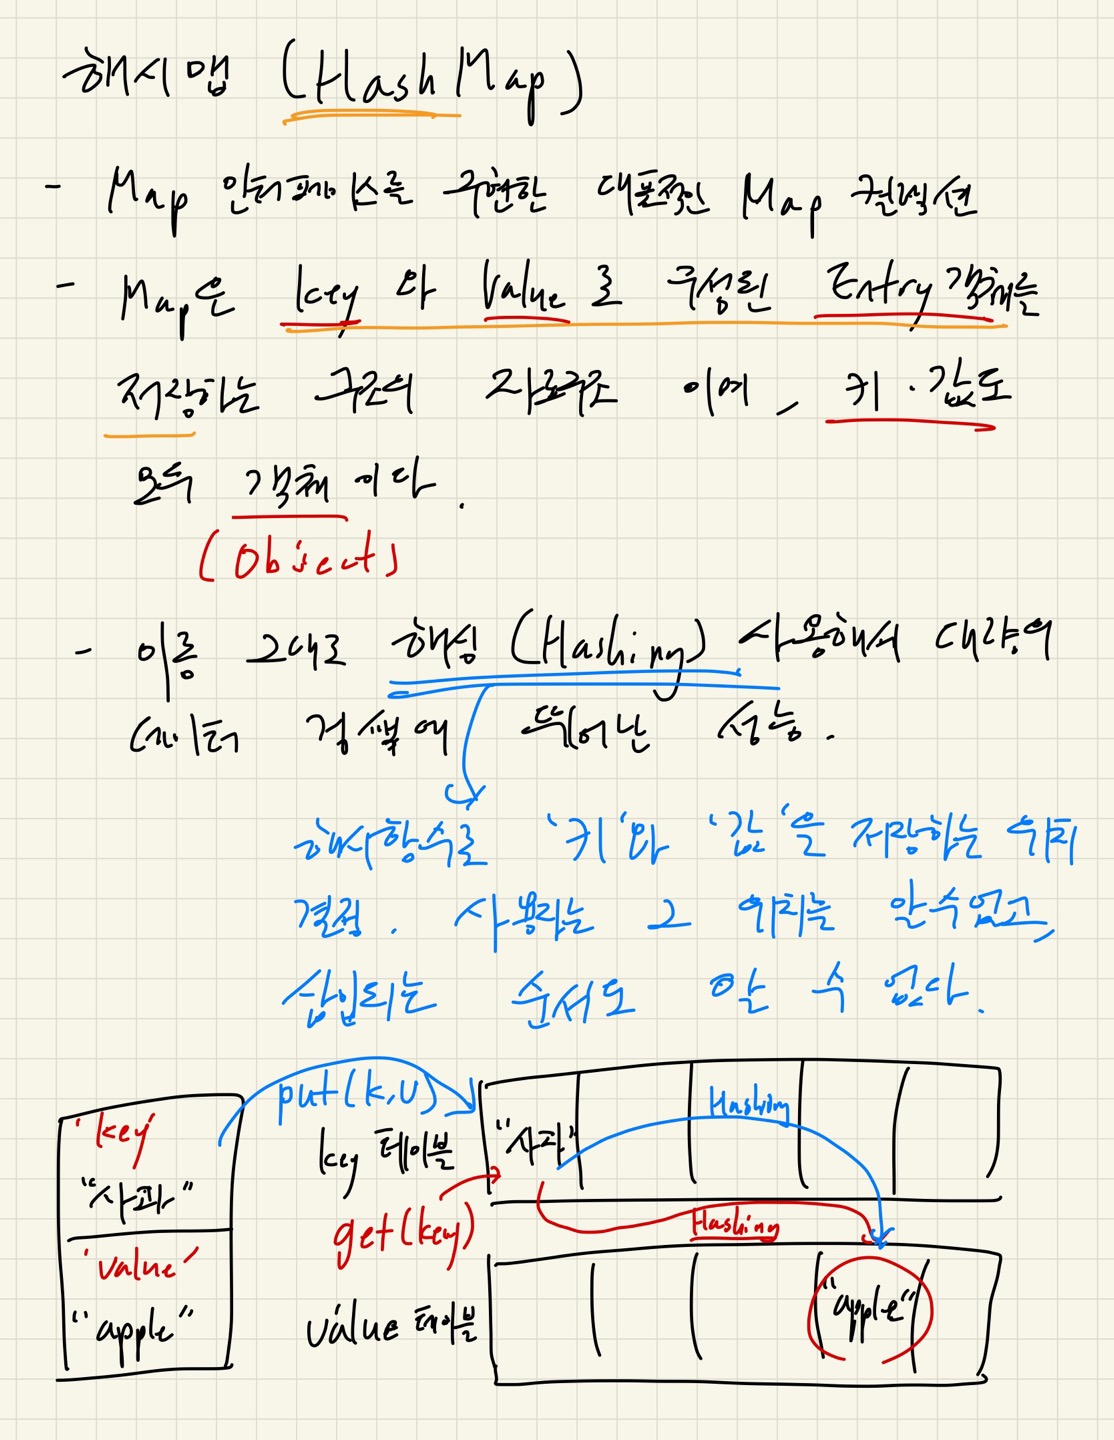 해시맵 (HashMap)
- Map 인터페이스를 구현한 대표적인 Map 컬렉션
- Map은 key 와 Value 로 구성된 Entry객체를
저장하는 구조의 자료구조 이며, 키 · 값도
모두 객체 이다.
(Object)
- 이름 그대로 해싱 (Hashing) 사용해서 대량의
데이터 검색에 뛰어난 성능.
해시함수로 '키'와 '값'을 저장하는 위치
결정. 사용자는 그 위치는 알수없고,
삽입되는 순서도 알 수 없다.
'key'
"사과"
'value'
"apple"
put(k,v)
key 테이블
"사과"
Hashing
get(key)
Hashing
value 테이블
"apple"